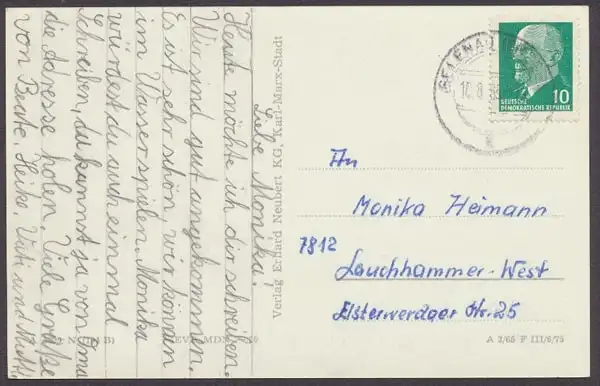 Liebe Monika!
Heute möchte ich dir schreiben.
Wir sind gut angekommen.
Es ist sehr schön, wir können
im Wasser spielen. Monika
würdest du auch einmal
schreiben, du kannst ja von Oma
die Adresse holen. Viele Grüße
von Beate, Heike, Vati und Mutti
Verlag Erhard Neubert KG, Karl-Marx-Stadt
DEUTSCHE
DEMOKRATISCHE REPUBLIK
10
An
Monika Heimann
7812
Lauchhammer-West
Elsterwerdaer Str. 25
A 3/65 F III/6/75